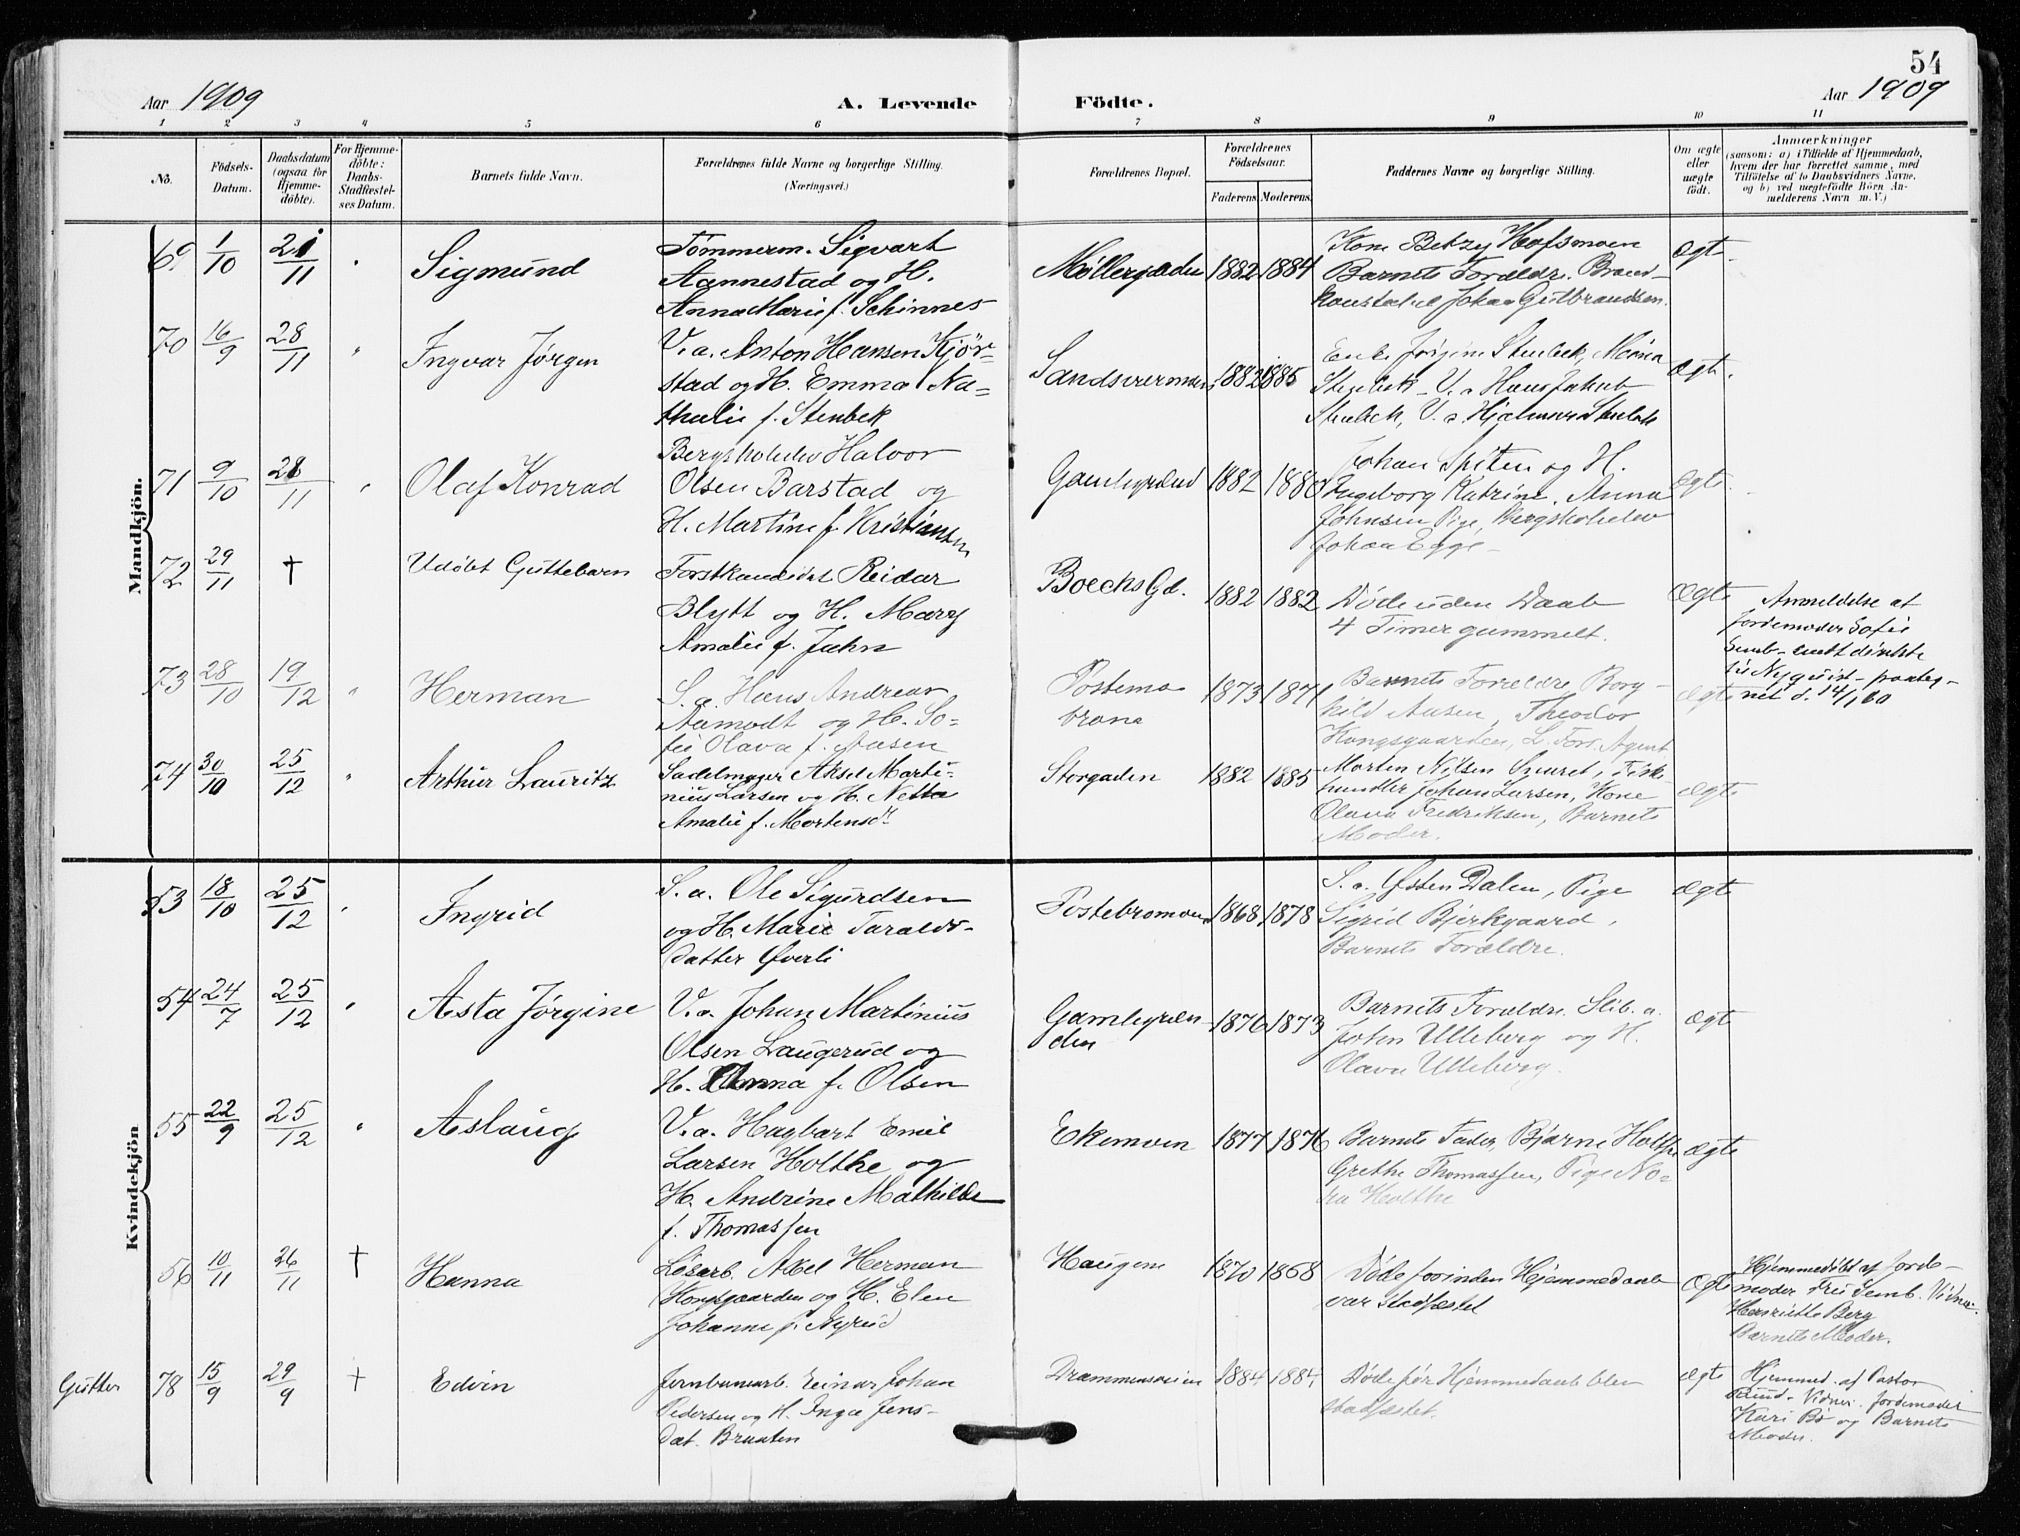 54
Aar 1909
A. Levende
Födte.
Aar 1909
1 2 3 4 5 6 7 8 9 10 11
No.
Födsels-
Datum.
Daabsdatum
(ogsaa for
Hjemme-
döbte).
For Hjemme-
döbte:
Daabs-
Stadfæstel-
ses Datum.
Barnets fulde Navn.
Forældrenes fulde Navne og borgerlige Stilling.
(Næringsvei.)
Forældrenes Bopæl.
Forældrenes
Födselsaar.
Faderens
Moderens.
Faddernes Navne og borgerlige Stilling.
Om ægte
eller
uægte
födt.
Anmærkninger
(saasom: a) i Tilfælde af Hjemmedaab,
hvem der har forrettet samme, med
Tilföielse af to Daabsvidners Navne,
og b) ved uægtefödte Börn An-
melderens Navn m. V.)
Mandkjön.
69. 1/10 21/11 " Sigmund
Tømmerm. Sigvart
Aannestad og H.
Anna Marie f. Schinnes
Møllergaden 1882 1884
Kone Betzy Hofsmoen
Barnets Forældre. Brand-
konstabel Johan Gulbrandsen.
Ægte.
70 16/9 28/11 " Ingvar Jørgen
V. a. Anton Hansen Kjør-
stad og H. Emma Na-
thalie f. Stenbek
Sandsværmoen 1882 1885
Enke Jørgine Stenbek, Maria
Stenbek V. a Hans Jakob
Stenbek, V. a. Hjalmar Stenbek
Ægte.
71 9/10 28/11 " Olaf Konrad
Bergskolelev Halvor
Olsen Barstad og
H. Martine f. Kristiansen
Gamlegrænd 1882 1880
Johan Spiten og H.
Ingeborg Katrine. Anna
Johnsen Pige, Bergskolelev
Johan Egge -
Ægte.
72 29/11 † Udøbt Guttebarn
Forstkandidat Reidar
Blytt og H. Mary
Amalie f. Juhn
Boecks Gd. 1882 1882
Døde uden Daab
4 Timer gammelt.
Ægte
Anmeldelse at
Jordemoder Sofie
Semb - indt direkte
til Nyquist - paateg-
net d. 14/1 60
73 28/10 19/12 " Herman
S. a. Hans Andreas
Aamodt og H. So-
fie Olava f. Aasen
Postemo
brona
1873 1871
Barnets Forældre Borg-
hild Aasen, Theodor
Kongsgaarden, L. Fors. Agent
Ægte
74 30/10 25/12 " Arthur Lauritz
Sadelmager Aksel Marti-
nius Larsen og H. Netta
Amalie f. Mortensd.
Storgaden 1882 1885
Morten Nilsen Snuret, Fiske-
handler Johan Larsen, Kone
Olava Fredriksen, Barnets
Moder.
Ægte
Kvindekjön
53 18/10 25/12 " Ingrid
S. a. Ole Sigurdsen
og H. Marie Taralds-
datter Øverli
Postebromoen 1868 1878
S. a. Østen Dalen, Pige
Sigrid Bjerkgaard,
Barnets Forældre.
Ægte
54 24/7 25/12 " Asta Jørgine
V. a. Johan Martinius
Olsen Laugerud og
H. Anna f. Olsen
Gamlegræn-
den
1876 1873
Barnets Forældre. Slib. a.
John Ulleberg og H.
Olava Ulleberg.
Ægte
55 22/9 25/12 " Aslaug
V. a. Hagbart Emil
Larsen Holthe og
H. Andrine Mathilde
f. Thomassen
Ekemoen 1877 1876
Barnets Fader, Bjarne Holthe
Grethe Thomassen, Pige No-
ra Holthe
Ægte
56 10/11 26/11 † Hanna
Løsarb. Axel Herman
Kongsgaarden og H. Elen
Johanne f. Myrud
Haugene 1870 1868
Døde forinden Hjemmedaab
var stadfæstet
Ægte
Hjemmedøbt af Jorde-
moder Fru Semb. Vidner:
Henriette Berg
Barnets Moder.
Gutter 78 15/9 29/9 † Edvin
Jernbanearb. Einar Johan
Pedersen og H. Inga Jens-
dat. Braaten
Drammensveien 1884 1884
Døde før Hjemmedaab blev
stadfæstet.
Ægte
Hjemmed. af Pastor
Ruud. Vidner. Jordemoder
Kari Bø og Barnets
Moder.